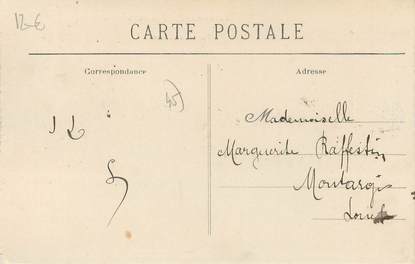 12-€
CARTE POSTALE
Correspondance
Adresse
45
Mademoiselle
Marguerite Raffestin
Montargis
Loiret